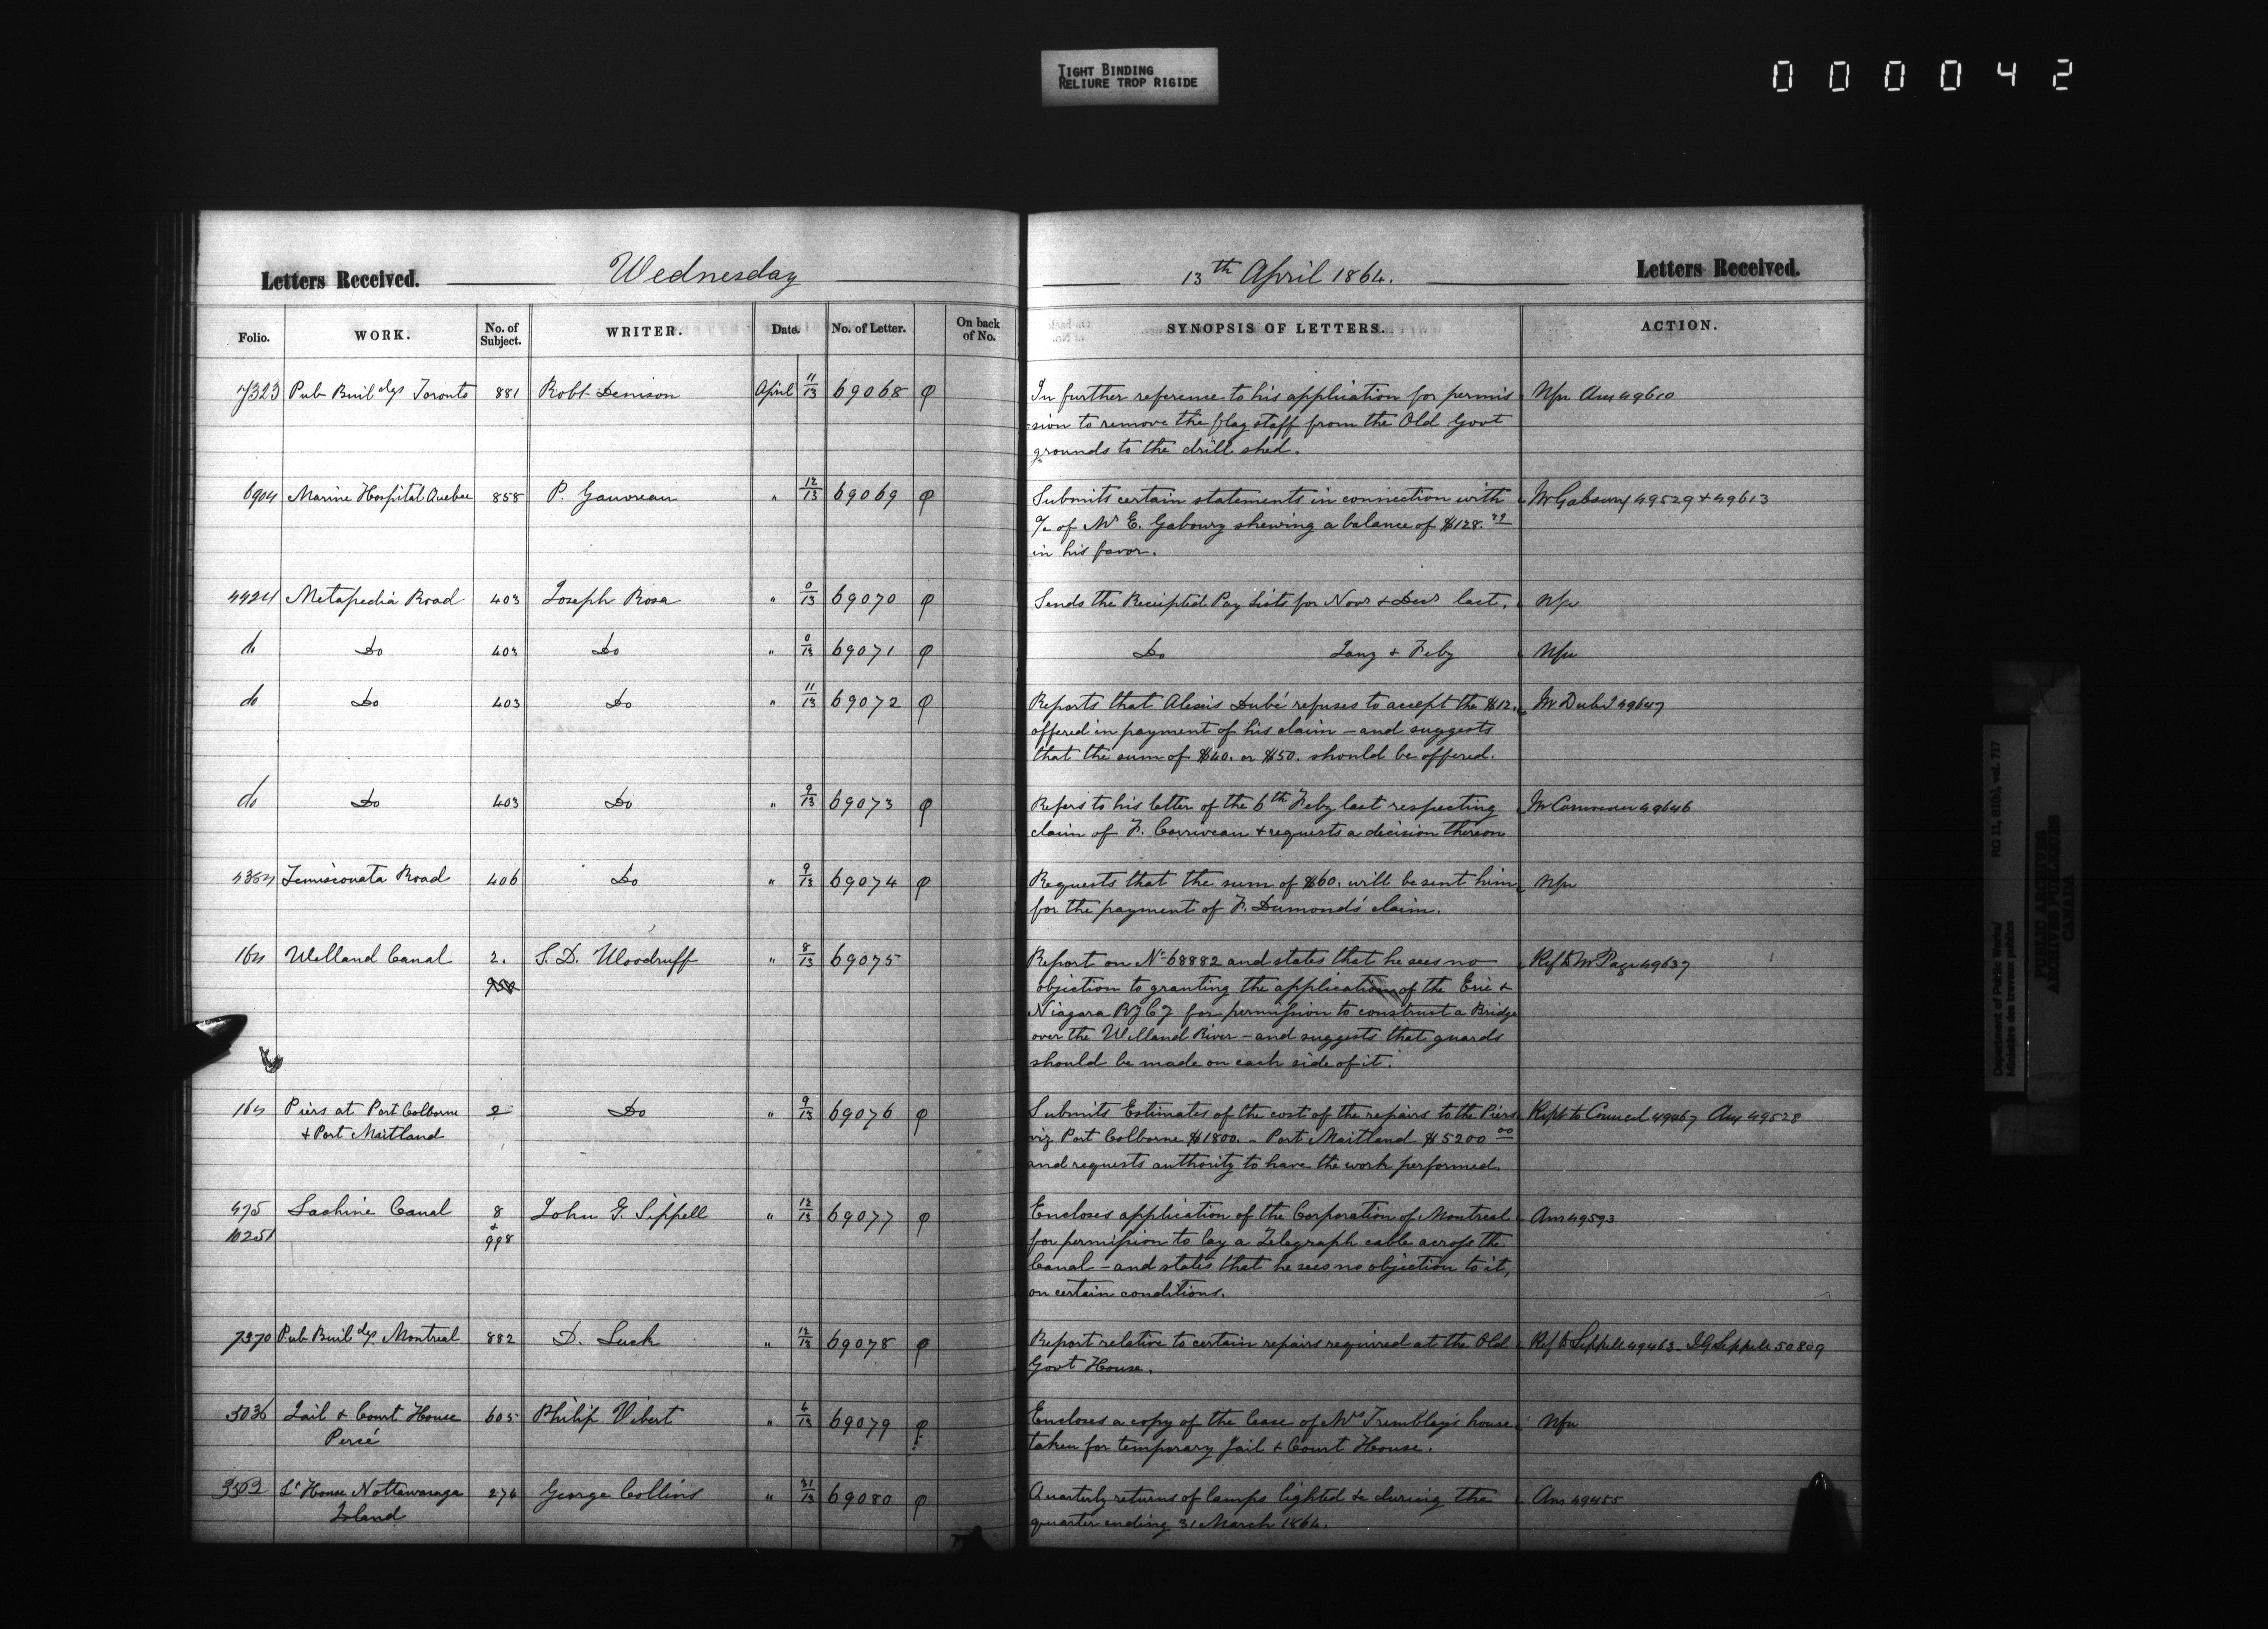 TIGHT BINDING
RELIURE TROP RIGIDE
000042
Letters Received. Wednesday
13th April 1864. Letters Received.
Folio. WORK. No. of Subject. WRITER. Date. No. of Letter. On back of No. SYNOPSIS OF LETTERS. ACTION.
7323 Pub Buildgs Toronto 881 Robt Denison April 11/13 69068 In further reference to his application for permis
sion to remove the flag staff from the Old Govt
grounds to the drill shed.
6904 Marine Hospital Quebec 858 P. Gauvreau " 12/13 69069 Submits certain statements in connection with Mr Gaboury 49529 + 49613
a/c of Mr E. Gaboury shewing a balance of $128.
in his favor.
4424 Metapedia Road 403 Joseph Rosa " 0/13 69070 Sends the Receipted Pay Lists for Novr & Decr last. Nfu
do Do 403 Do " 0/13 69071 Do Jany & Feby Nfu
do Do 403 Do " 11/13 69072 Reports that Alexis Dubé refuses to accept the $12. Mr Dubé 49647
offered in payment of his claim - and suggests
that the sum of $40. or $50. should be offered.
do Do 403 Do " 9/13 69073 Refers to his letter of the 6th Feby last respecting 49646
claim of F. Corriveau & requests a decision thereon
Temiscouata Road 406 Do " 9/13 69074 Requests that the sum of $60. will be sent him Nfu
for the payment of F. Dumond's claim.
164 Welland Canal 2. S. D. Woodruff " 8/13 69075 Report on No 68882 and states that he sees no Ref to Mr Page 49637
objection to granting the application of the Erie &
Niagara Ry Cy for permission to construct a Bridge
over the Welland River - and suggests that guards
should be made on each side of it.
164 Piers at Port Colborne 2 Do " 9/13 69076 Submits Estimates of the cost of the repairs to the Piers Rept to Council 49467 Ans 49528
& Port Maitland
viz Port Colborne $1800. - Port Maitland $5200 00
and requests authority to have the work performed.
475 Lachine Canal 8 John G. Sippell " 12/13 69077 Encloses application of the Corporation of Montreal Ans 49593
10251 & 998
for permission to lay a Telegraph cable across the
Canal - and states that he sees no objection to it,
on certain conditions.
7370 Pub Buildgs Montreal 882 D. Luck " 12/13 69078 Report relative to certain repairs required at the Old Ref to Sippell 49463. JG Sippell 50809
Govt House.
5036 Jail & Court House 605 Philip Vibert " 4/13 69079 Encloses a copy of the lease of Mrs Tremblay's house Nfu
Percé
taken for temporary Jail & Court House.
3503 Lt House Nottawasaga 274 George Collins " 31/13 69080 Quarterly returns of lamps lighted &c during the Ans 49455
Island
quarter ending 31 March 1864.
Department of Public Works/
Ministère des travaux publics
RG 11, B1(b), vol. 717
PUBLIC ARCHIVES
ARCHIVES PUBLIQUES
CANADA